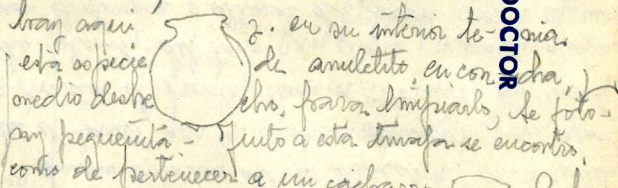 bran aqui z. en su interior te- nia
esta especie de amuletito, en con cha,
medio deshe cho, para limpiarlo, se foto-
an pequeñita - Junto a esta tinaja se encontro,
como de pertenecer a un
DOCTOR